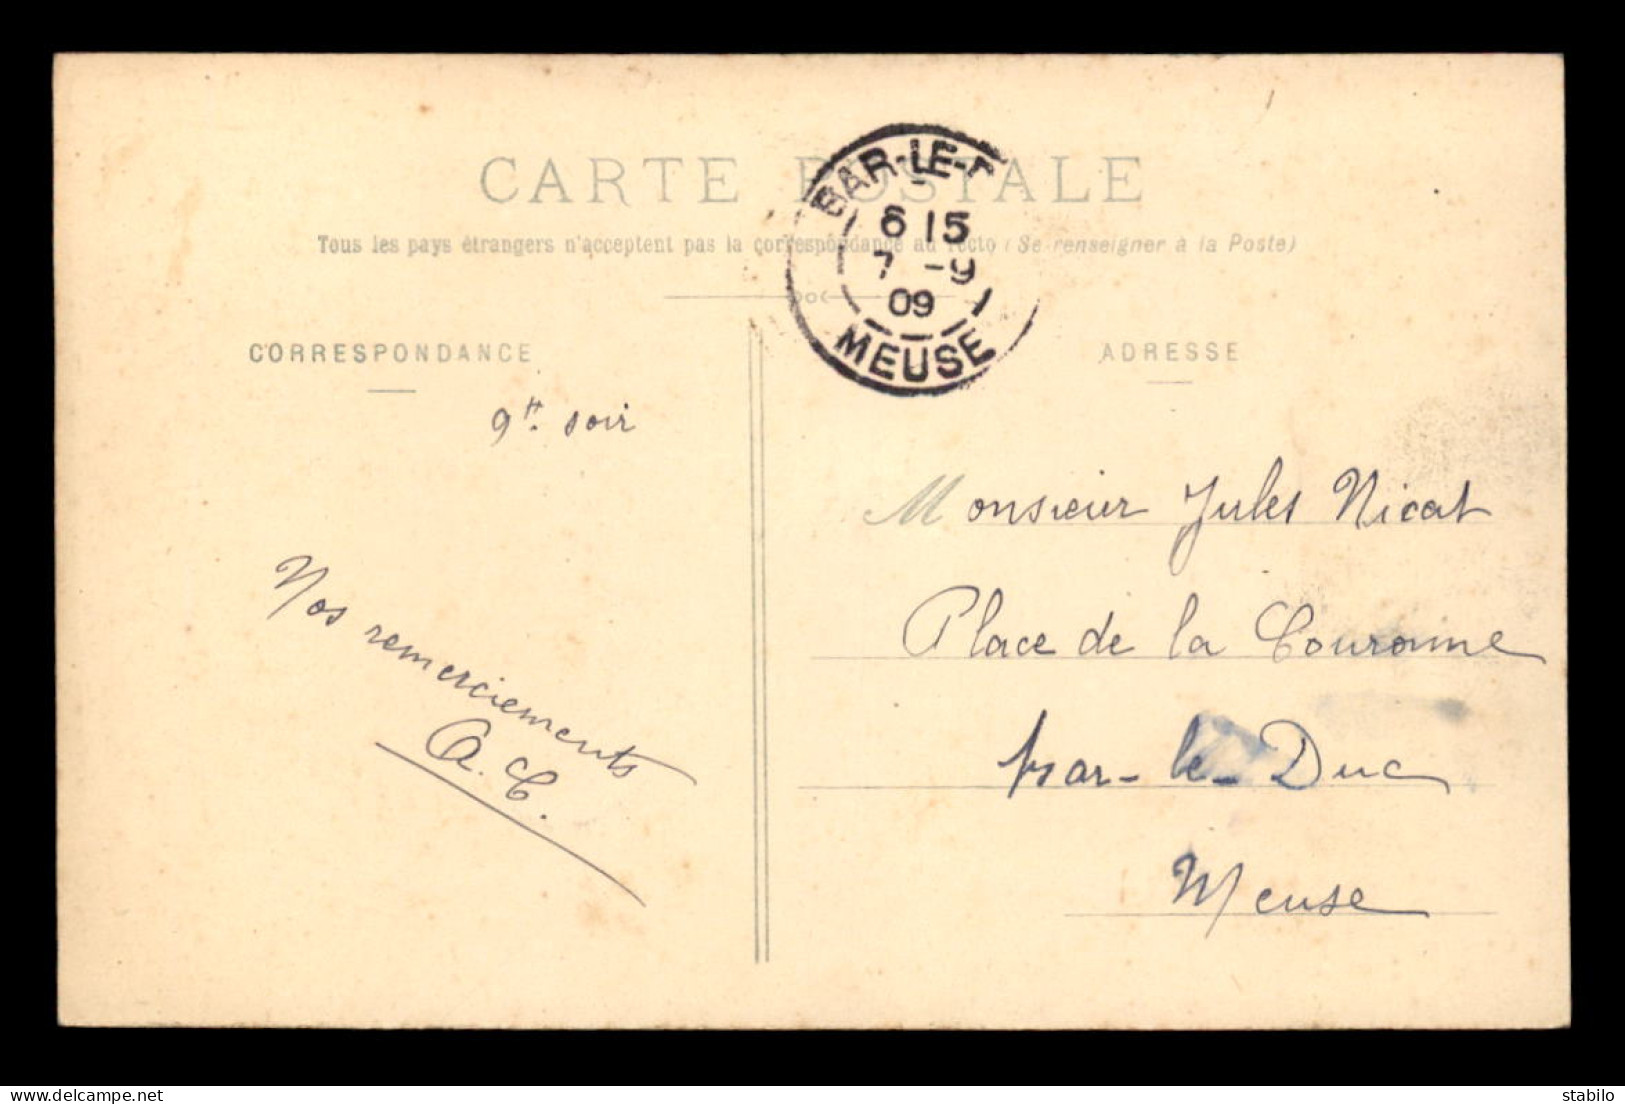 CARTE POSTALE
Tous les pays étrangers n'acceptent pas la correspondance au recto (Se renseigner à la Poste)
BAR-LE-D
6 15
7 -9
09
MEUSE
CORRESPONDANCE
ADRESSE
9H. soir
Nos remerciements
A. C.
Monsieur Jules Nicat
Place de la Couronne
Bar-le-Duc
Meuse
delcampe.net
stabilo